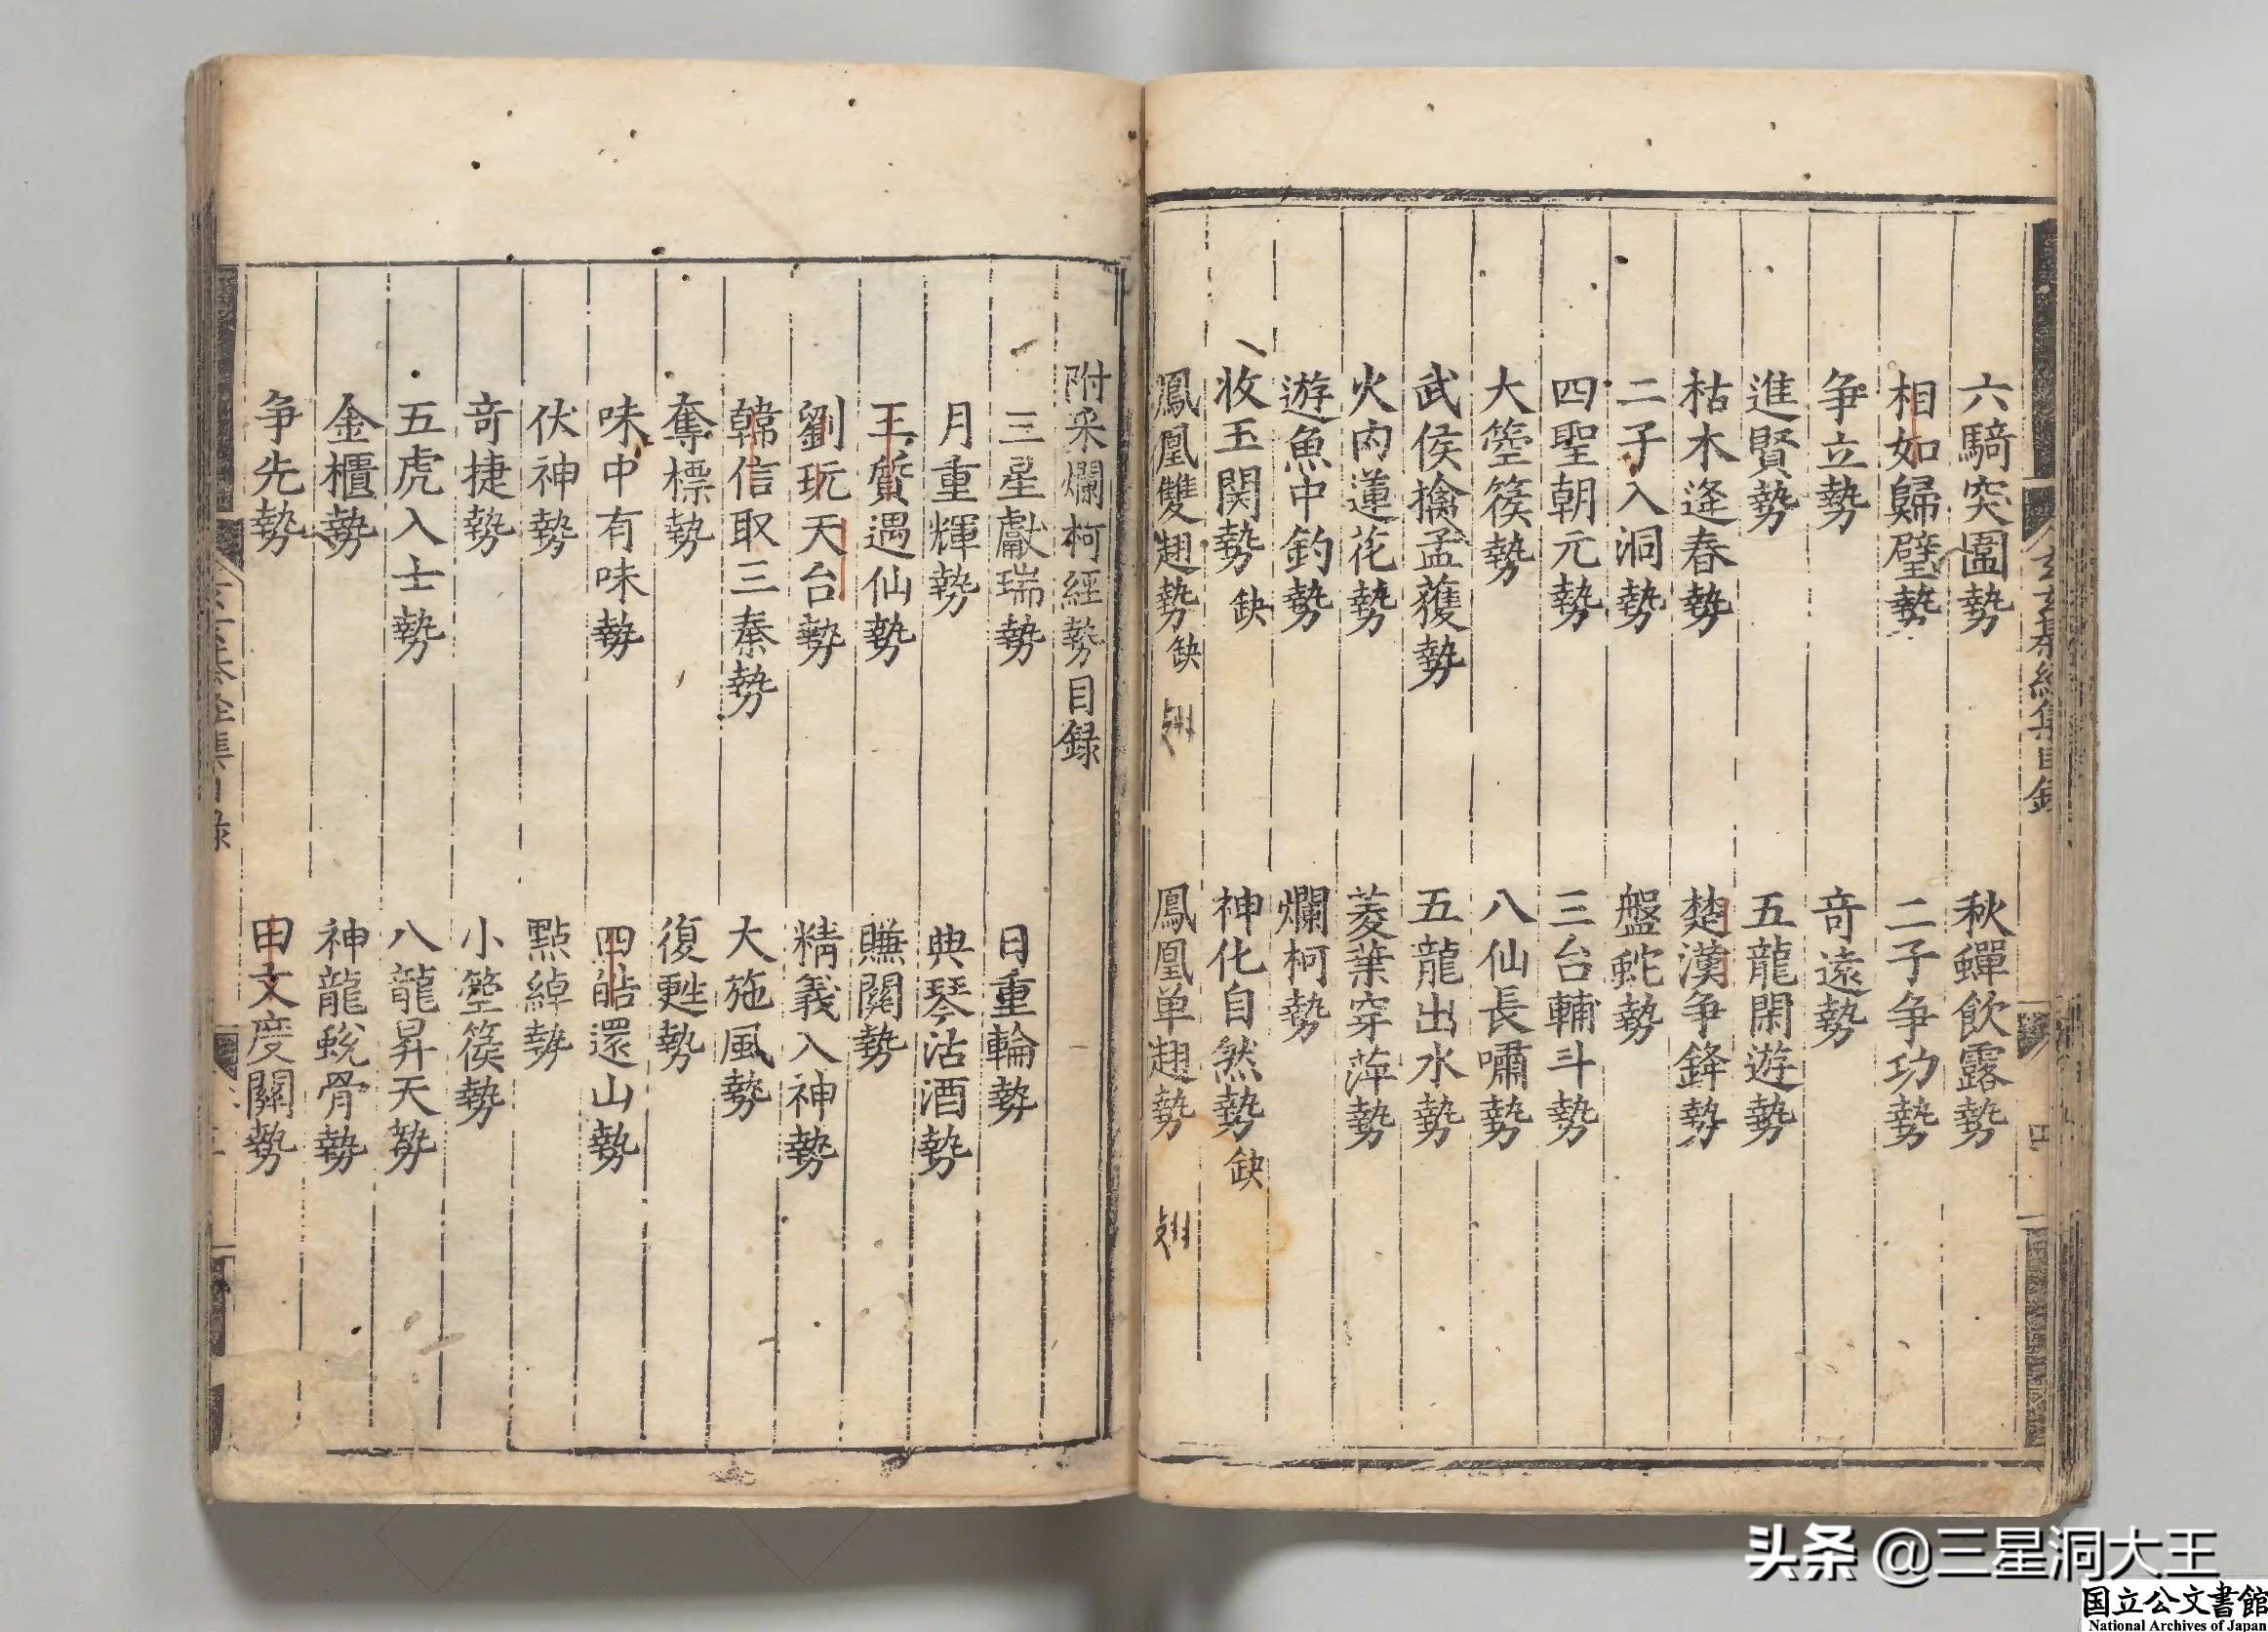 六騎突圍勢 秋蟬飲露勢
相如歸璧勢 二子争功勢
争立勢 竒遠勢
進賢勢 五龍閑遊勢
枯木逢春勢 楚漢争鋒勢
二子入洞勢 盤蛇勢
四聖朝元勢 三台輔斗勢
大箜篌勢 八仙長嘯勢
武侯擒孟獲勢 五龍出水勢
火内蓮花勢 菱葉穿萍勢
遊魚中釣勢 爛柯勢
收玉関勢 缺 神化自然勢 缺
鳳凰雙翅勢 缺 翅 鳳凰单翅勢 翅
附采爛柯經勢目録
三星獻瑞勢 日重輪勢
月重輝勢 典琴沽酒勢
王質遇仙勢 賺關勢
劉玩天台勢 精義入神勢
韓信取三秦勢 大施風勢
奪標勢 復甦勢
味中有味勢 四皓還山勢
伏神勢 點綽勢
竒捷勢 小箜篌勢
五虎入士勢 八龍昇天勢
金櫃勢 神龍蛻骨勢
争先勢 田文度關勢
头条 @三星洞大王
国立公文書館
National Archives of Japan